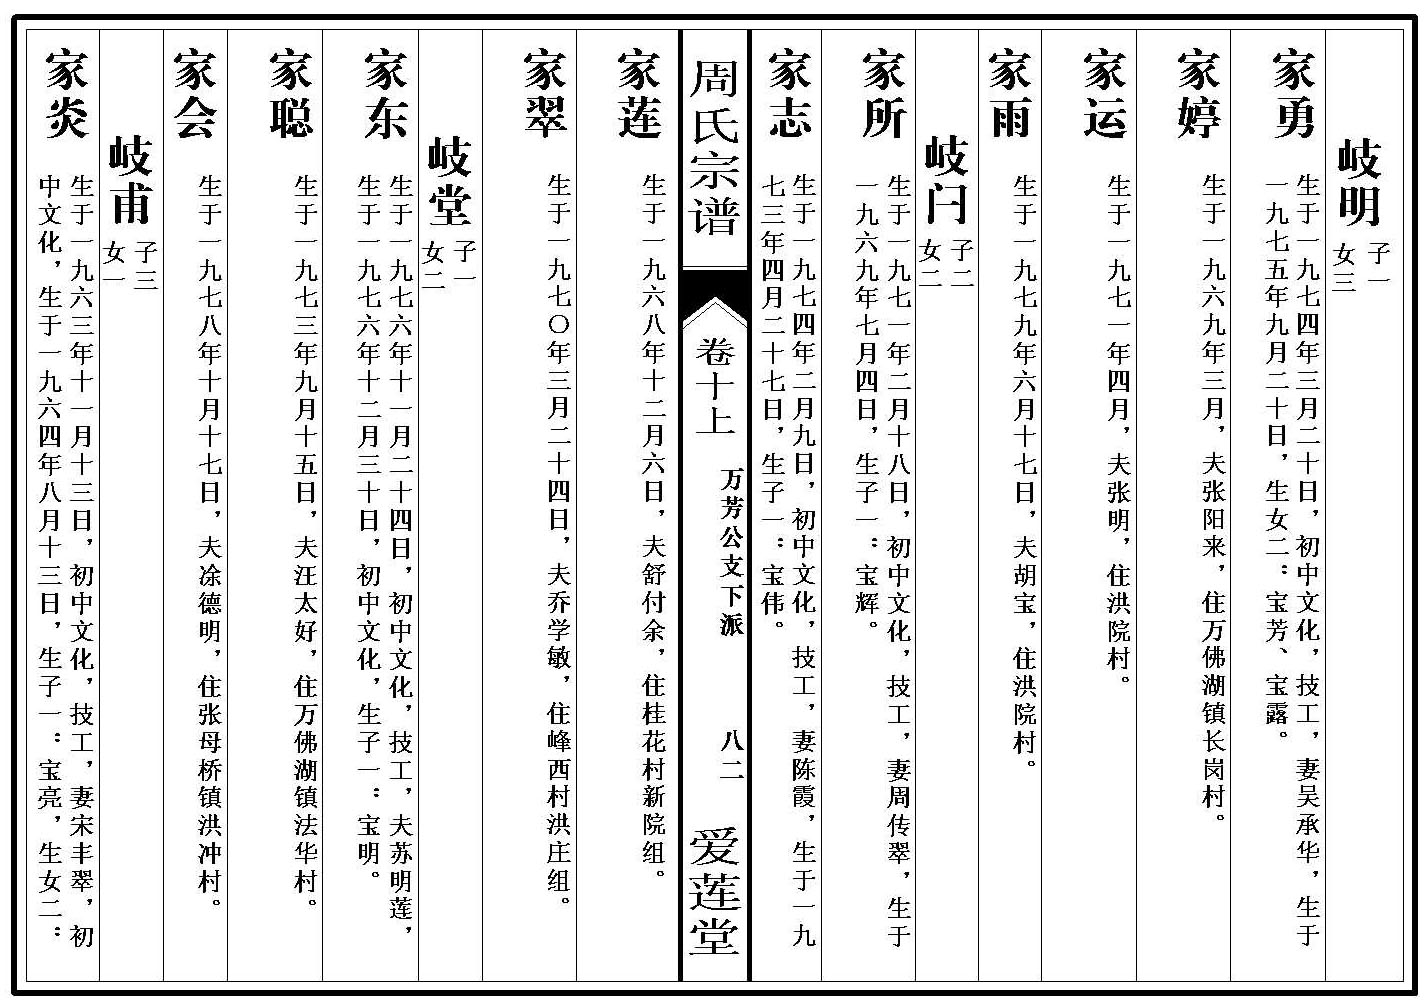 岐明
子一
女三
家勇
生于一九七四年三月二十日，初中文化，技工，妻吴承华，生于
一九七五年九月二十日，生女二：宝芳、宝露。
家婷
生于一九六九年三月，夫张阳来，住万佛湖镇长岗村。
家运
生于一九七一年四月，夫张明，住洪院村。
家雨
生于一九七九年六月十七日，夫胡宝，住洪院村。
岐闩
子二
女二
家所
生于一九七一年二月十八日，初中文化，技工，妻周传翠，生于
一九六九年七月四日，生子一：宝辉。
家志
生于一九七四年二月九日，初中文化，技工，妻陈霞，生于一九
七三年四月二十七日，生子一：宝伟。
周氏宗谱
卷十上
万芳公支下派
八二
爱莲堂
家莲
生于一九六八年十二月六日，夫舒付余，住桂花村新院组。
家翠
生于一九七〇年三月二十四日，夫乔学敏，住峰西村洪庄组。
岐堂
子一
女二
家东
生于一九七六年十一月二十四日，初中文化，技工，夫苏明莲，
生于一九七六年十二月三十日，初中文化，生子一：宝明。
家聪
生于一九七三年九月十五日，夫汪太好，住万佛湖镇法华村。
家会
生于一九七八年十月十七日，夫凃德明，住张母桥镇洪冲村。
岐甫
子三
女一
家炎
生于一九六三年十一月十三日，初中文化，技工，妻宋丰翠，初
中文化，生于一九六四年八月十三日，生子一：宝亮，生女二：